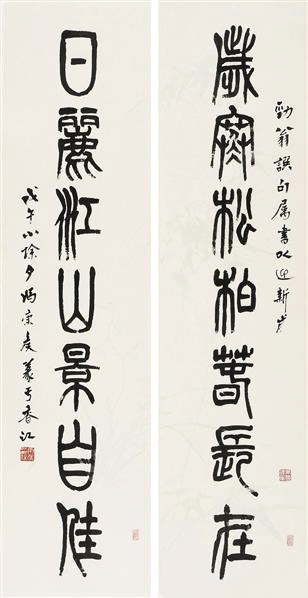 勁翁譔句屬書以迎新歲
歲寒松柏萅長在
日麗江山景自佳
戊午小除夕馮康侯篆于香江